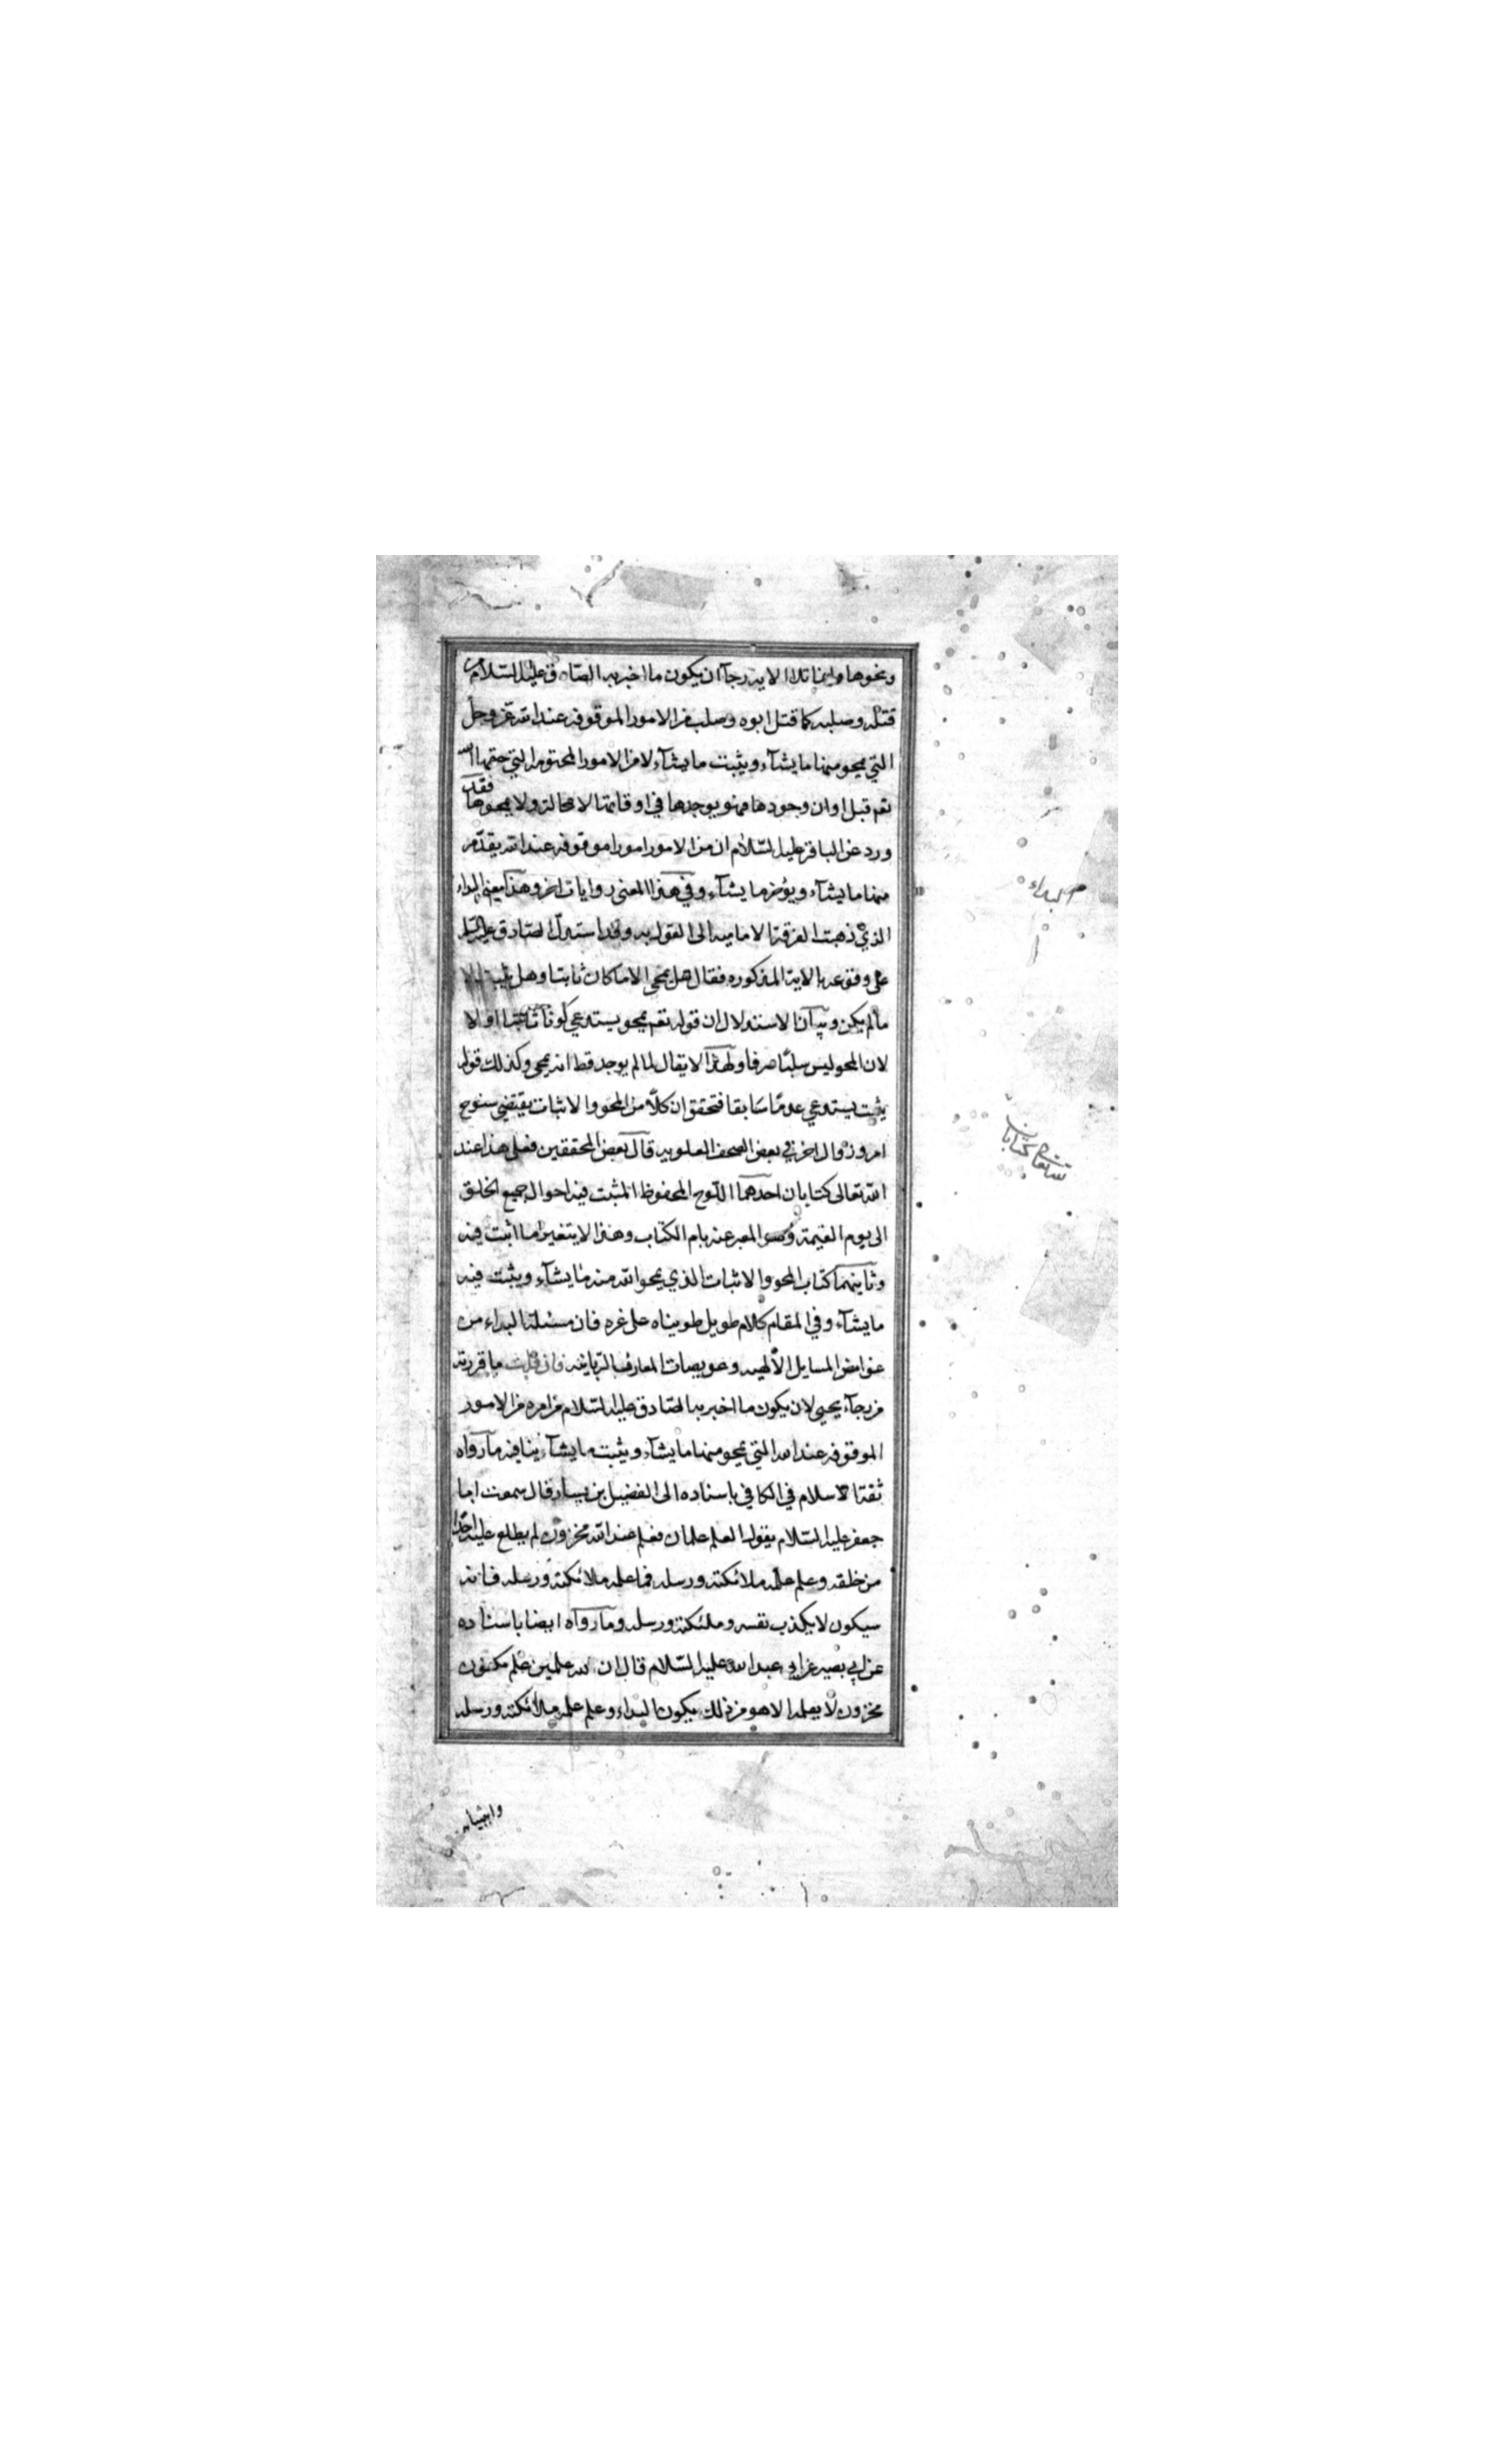 ونحوها وانما تلا الاية رجآء ان يكون ما اخبر به الصادق عليه السلام من
قتله وصلبه كما قتل ابوه وصلب من الامور الموقوفه عند الله عز وجل
التي يمحو منها ما يشآء ويثبت ما يشآء لا من الامور المحتومه التي حتمها الله
تعم قبل اوان وجودها فهو يوجدها في اوقاتها لا محالة ولا يمحوها فقد
ورد عن الباقر عليه السلام ان من الامور امورا موقوفه عند الله يقدم
منها ما يشآء ويؤخر ما يشآء وفي هذا المعنى روايات اخر وهذا معنى البداء
الذي ذهبت الفرقة الاماميه الى القول به وقد استدل الصادق عليه السلام
على وقوعه بالاية المذكوره فقال هل يمحى الا ما كان ثابتا وهل يثبت الا
مالم يكن وبيان الاستدلال ان قوله تعم يمحو يستدعي كونا ثابتا اولا
لان المحو ليس سلبا صرفا ولهذا لا يقال لما لم يوجد قط انه يمحى وكذلك قوله
يثبت يستدعي عدما سابقا فتحقق ان كلا من المحو والاثبات يقتضي سنوح
امر وزوال اخر في بعض الصحف العلويه قال بعض المحققين فعلى هذا عند
الله تعالى كتابان احدهما اللوح المحفوظ المثبت فيه احوال جميع الخلق
الى يوم القيمة وهو المعبر عنه بام الكتاب وهذا لا يتغير ما اثبت فيه
وثانيهما كتاب المحو والاثبات الذي يمحو الله منه ما يشآء ويثبت فيه
ما يشآء وفي المقام كلام طويل طويناه على غره فان مسئلة البداء من
غوامض المسايل الالهيه وعويصات المعارف الربانيه فان قلت ما قررته
من رجآء يحيى لان يكون ما اخبر به الصادق عليه السلام من امره من الامور
الموقوفه عند الله التي يمحو منها ما يشآء ويثبت ما يشآء ينافيه ما رواه
ثقة الاسلام في الكافي باسناده الى الفضيل بن يسار قال سمعت ابا
جعفر عليه السلام يقول العلم علمان فعلم عند الله مخزون لم يطلع عليه احدا
من خلقه وعلم علمه ملائكته ورسله فما علمه ملائكته ورسله فانه
سيكون لا يكذب نفسه وملئكته ورسله وما رواه ايضا باسناده
عن ابي بصير عن ابي عبد الله عليه السلام قال ان لله علمين علم مكنون
مخزون لا يعلمه الا هو من ذلك يكون البداء وعلم علمه ملائكته ورسله
البداء
كتابان
وانبيائه